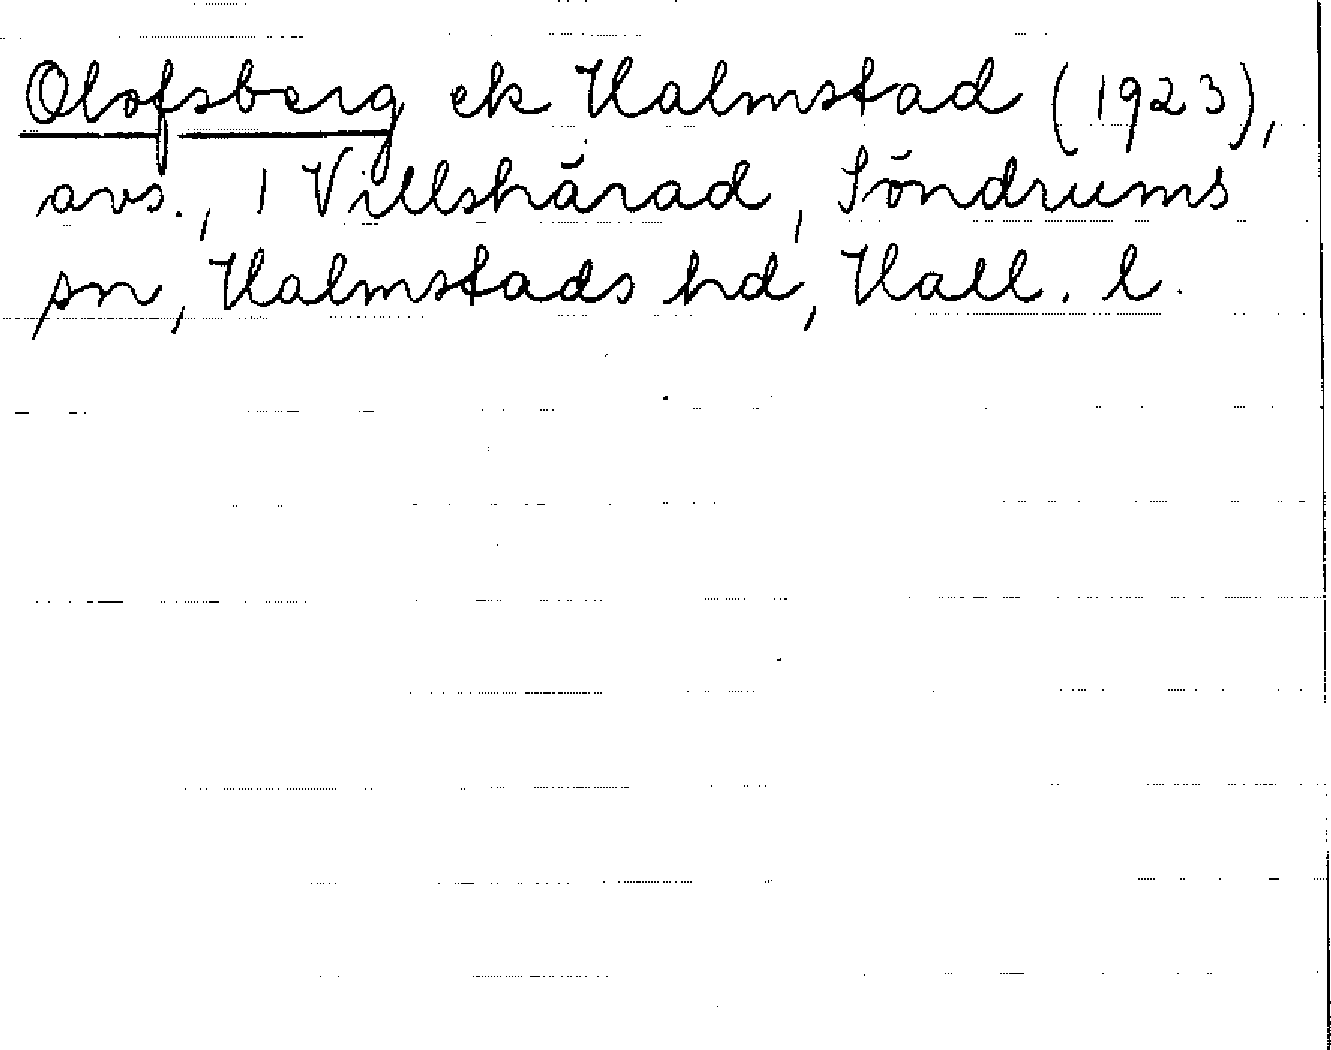 Olofsberg ek Halmstad (1923),
avs., 1 Villshärad, Söndrums
sn, Halmstads hd, Hall. l.